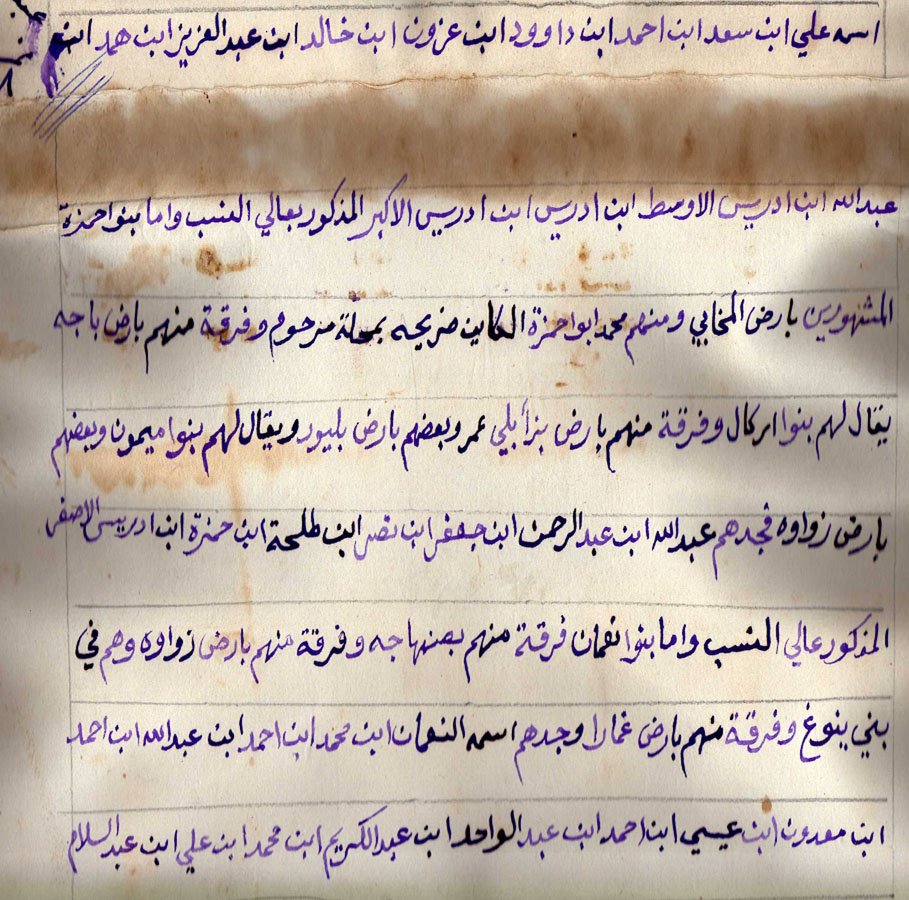 اسمه علي ابن سعد ابن احمد ابن داوود ابن عزون ابن خالد ابن عبد العزيز ابن حمد ابن
عبد الله ابن ادريس الاوسط ابن ادريس ابن ادريس الاكبر المذكور بعالي النسب واما بنوا حمزة
المشهورين بارض المخابي ومنهم محمد ابوا حمزة الكاين ضريحه بمحلة مرحوم وفرقة منهم بارض باجه
يقال لهم بنوا اركال وفرقة منهم بارض بزأبلي عمر وبعضهم بارض بليور ويقال لهم بنوا ميمون وبعضهم
بارض زواوه فجدهم عبد الله ابن عبد الرحمن ابن جعفر ابن نصر ابن طلحة ابن حمزة ابن ادريس الاصغر
المذكور عالي النسب واما بنوا نعمان فرقة منهم بصنهاجه وفرقة منهم بارض زواوه وهم في
بني ينوغ وفرقة منهم بارض غمارا وجدهم اسمه النعمان ابن محمد ابن احمد ابن عبد الله ابن احمد
ابن معدون ابن عيسي ابن احمد ابن عبد الواحد ابن عبد الكريم ابن محمد ابن علي ابن عبد السلام